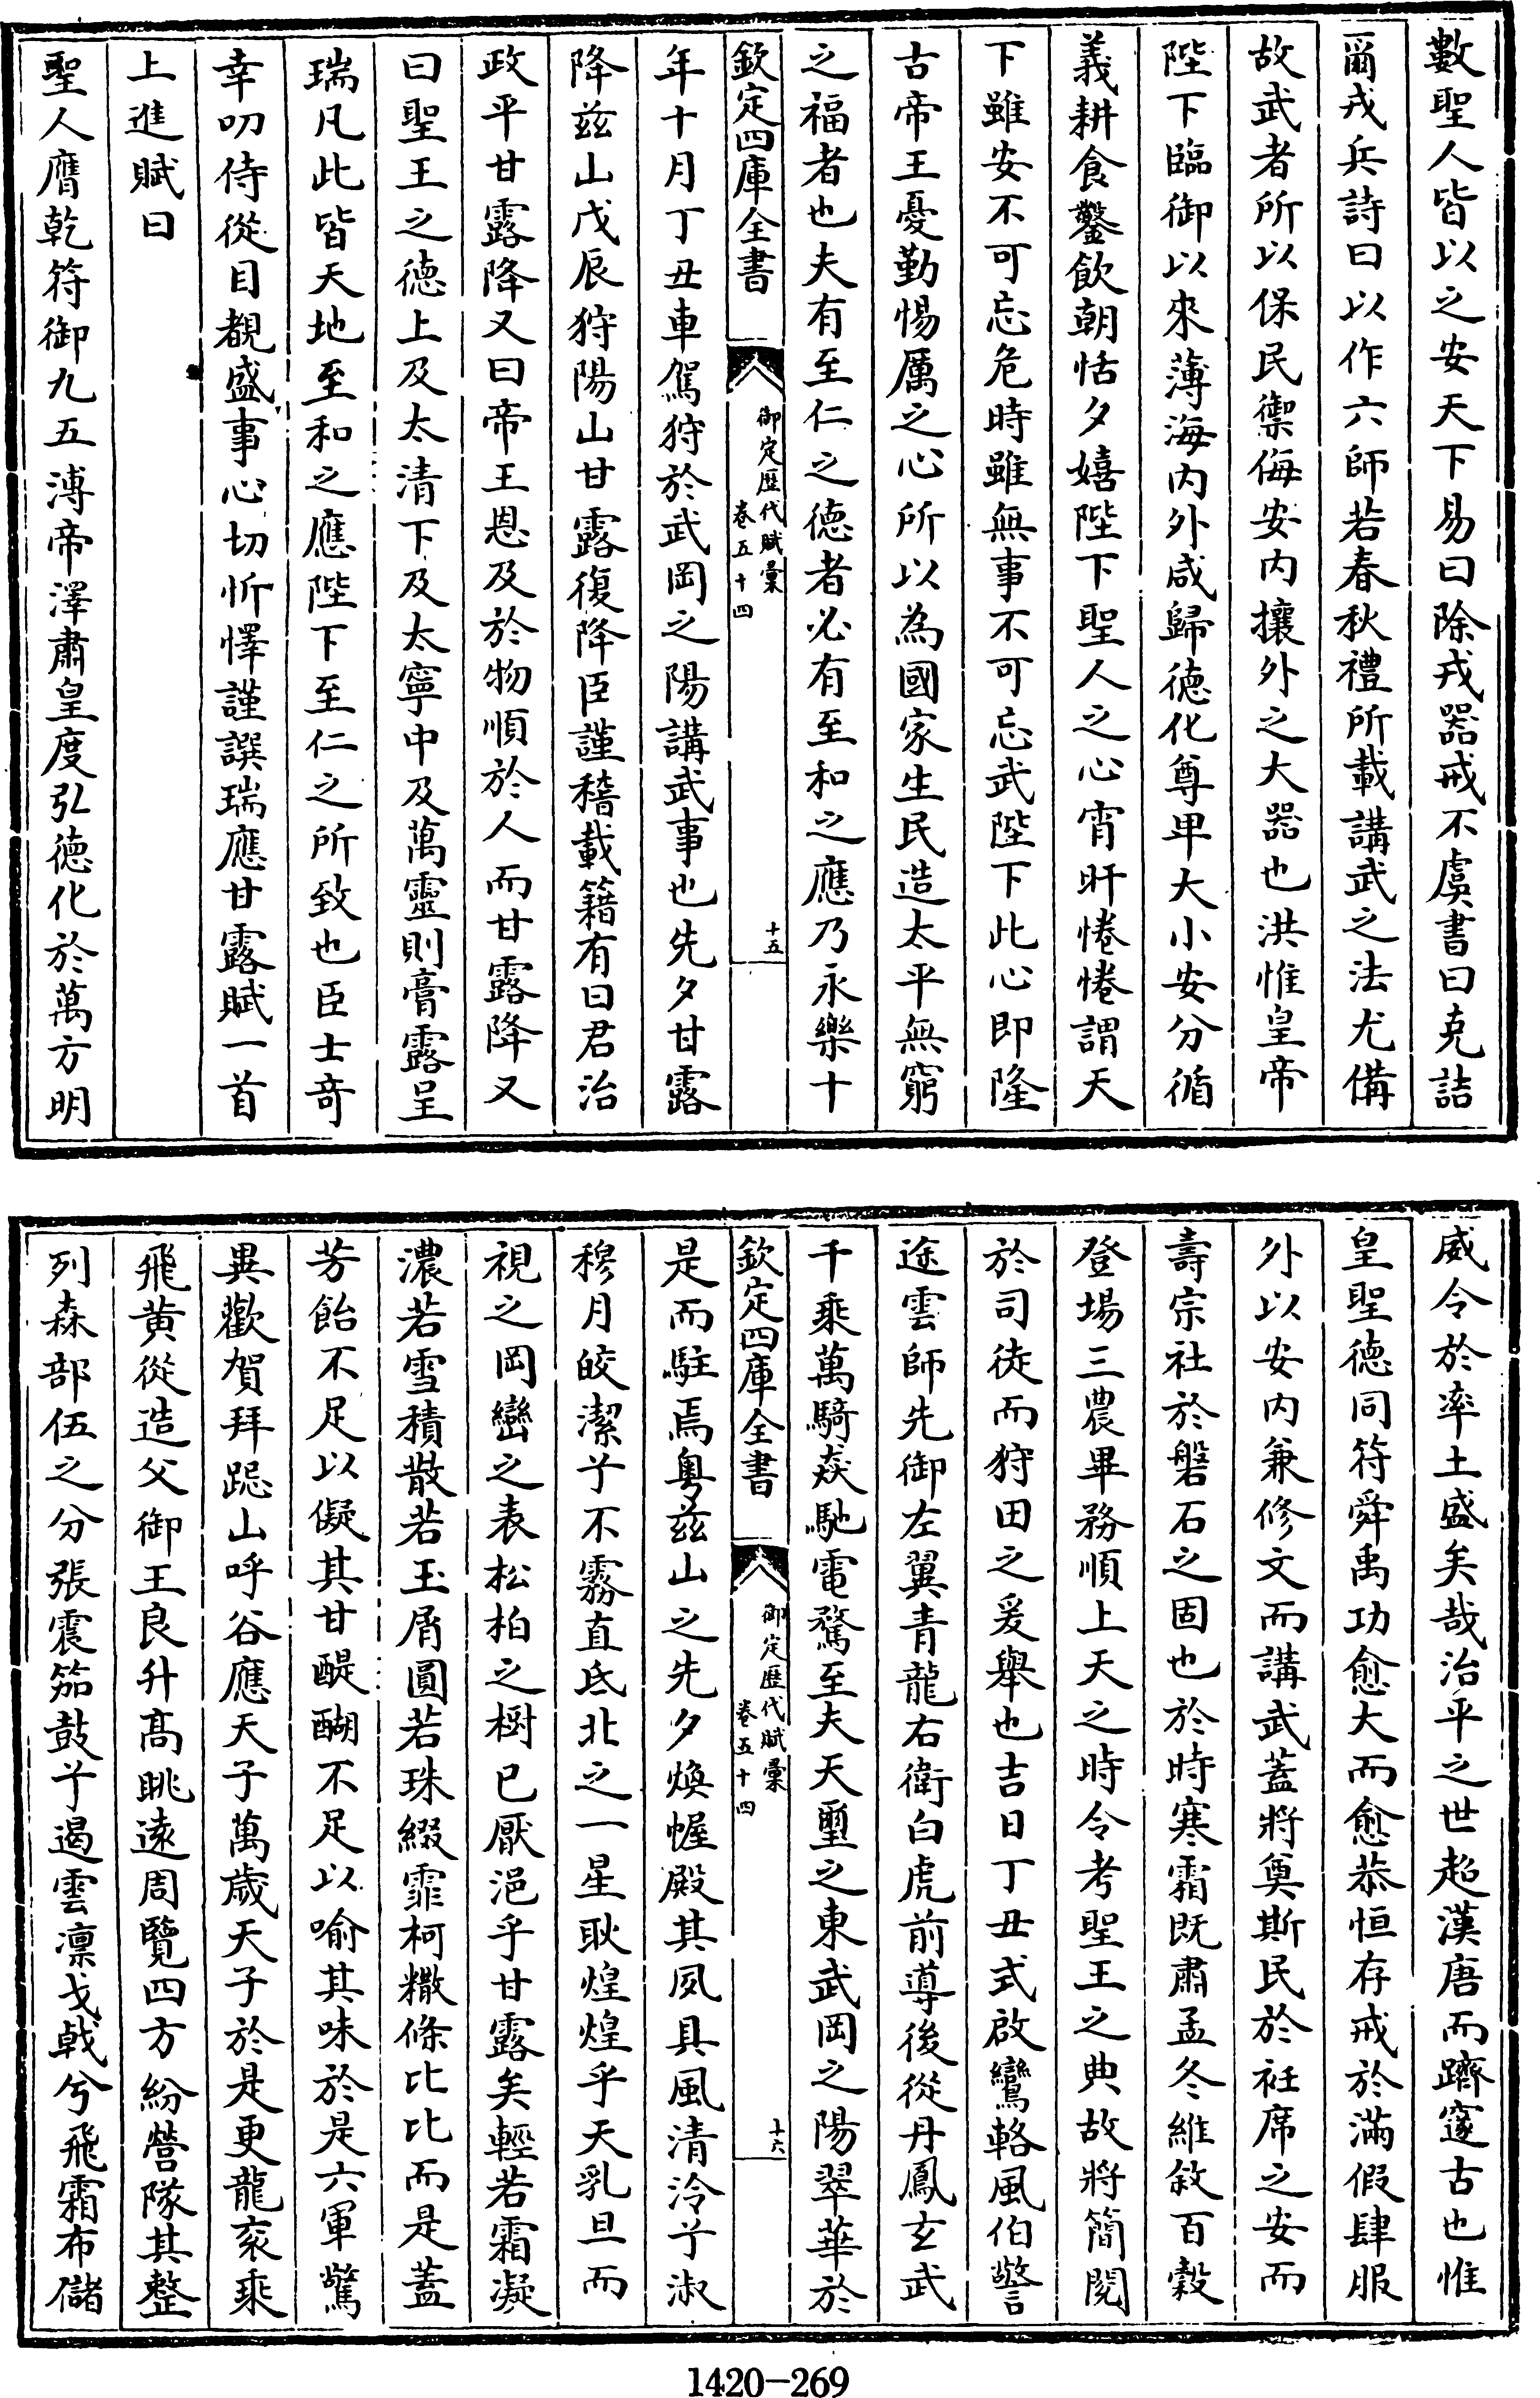 數聖人皆以之安天下易曰除戎器戒不虞書曰克詰
爾戎兵詩曰以作六師若春秋禮所載講武之法尤備
故武者所以保民禦侮安内攘外之大器也洪惟皇帝
陛下臨御以來薄海内外咸歸德化尊甲大小安分循
義耕食鑿飲朝恬夕嬉陛下聖人之心宵旰惓惓謂天
下雖安不可忘危時雖無事不可忘武陛下此心即隆
古帝王憂勤惕厲之心所以為國家生民造太平無窮
之福者也夫有至仁之德者必有至和之應乃永樂十
欽定四庫全書
御定歴代賦彙
卷五十四
十五
年十月丁丑車駕狩於武岡之陽講武事也先夕甘露
降兹山戊辰狩陽山甘露復降臣謹稽載籍有曰君治
政平甘露降又曰帝王恩及於物順於人而甘露降又
曰聖王之德上及太清下及太寧中及萬靈則膏露呈
瑞凡此皆天地至和之應陛下至仁之所致也臣士奇
幸叨侍從目覩盛事心切忻懌謹譔瑞應甘露賦一首
上進賦曰
聖人膺乾符御九五溥帝澤肅皇度弘德化於萬方明
威令於率土盛矣哉治平之世超漢唐而躋邃古也惟
皇聖德同符舜禹功愈大而愈恭恒存戒於滿假肆服
外以安内兼修文而講武蓋將奠斯民於袵席之安而
壽宗社於磐石之固也於時寒霜既肅孟冬維敘百穀
登場三農畢務順上天之時令考聖王之典故將簡閲
於司徒而狩田之爰舉也吉日丁丑式啟鸞輅風伯警
途雲師先御左翼青龍右衛白虎前導後從丹鳳玄武
千乘萬騎焱馳電騖至夫天塹之東武岡之陽翠華於
欽定四庫全書
御定歴代賦彙
卷五十四
十六
是而駐焉粤兹山之先夕煥幄殿其夙具風清泠兮淑
穆月皎潔兮不霧直氐北之一星耿煌煌乎天乳旦而
視之岡巒之表松柏之樹已厭浥乎甘露矣輕若霜凝
濃若雪積散若玉屑圓若珠綴霏柯糝條比比而是蓋
芳飴不足以儗其甘醍醐不足以喻其味於是六軍驚
異歡賀拜跽山呼谷應天子萬歲天子於是更龍衮乘
飛黄從造父御王良升髙眺逺周覽四方紛營隊其整
列森部伍之分張震笳鼓兮遏雲凛戈戟兮飛霜布儲
1420-269